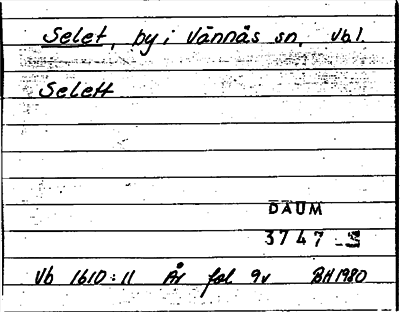 Selet, by i Vännäs sn, Vb l.
Selett
DAUM
3747
Vb 1610:11 År fol 9v BH 1980